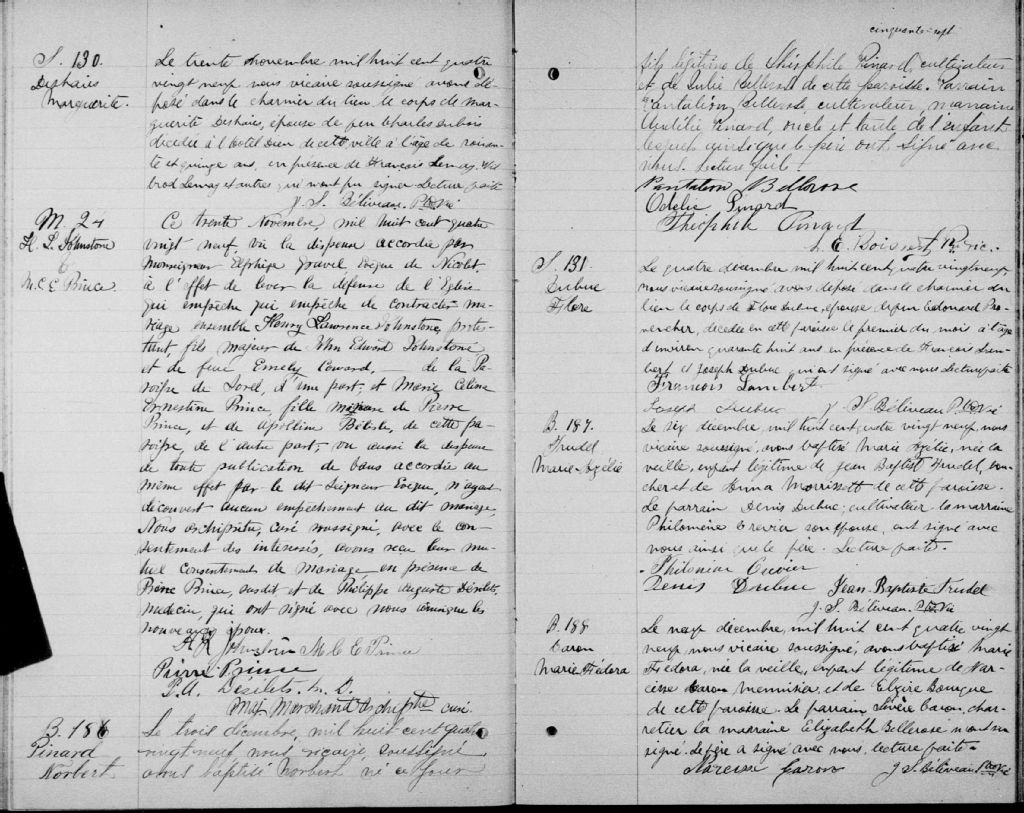 S. 130.
Deshaies
Marguerite.
Le trente novembre mil huit cent quatre
vingt neuf nous vicaire soussigné avons dé-
posé dans le charnier du lieu le corps de Mar-
guerite Deshaies, épouse de feu Charles Dubois
décédée à l'hotel Dieu de cette ville à l'âge de soixan-
te et quinze ans, en présence de François Lemay,
Lemay et autres qui n'ont pu signer Lecture faite
J. S. Béliveau. Ptre Vic
M. 24
H. L. Johnstone
&
M. C. E Prince
Ce trente Novembre, mil huit cent quatre
vingt neuf, vu la dispense accordée par
Monseigneur Elphège Gravel, Evêque de Nicolet,
à l'effet de lever la défense de l'Eglise
qui empêche qui empêche de contracter ma-
riage ensemble Henry Lawrence Johnstone, protes-
tant, fils majeur de John Edward Johnstone
et de feue Emely Coward, — de la Pa-
roisse de Sorel, d'une part, et Marie Celina
Ernestine Prince, fille majeure de Pierre
Prince, et de Apolline, de cette pa-
roisse, de l'autre part; vu aussi la dispense
de toute publication de bans accordée au
même effet par le dit Seigneur Evêque, n'ayant
découvert aucun empêchement au dit mariage,
Nous archiprêtre, curé soussigné, avec le con-
sentement des intéressés, avons reçu leur mu-
tuel consentement de mariage en présence de
Pierre Prince, susdit et de Philippe Auguste Désilets,
médecin, qui ont signé avec nous ainsi que les
nouveaux époux.
H L Johnston M. C. E Prince
Pierre Prince
P. A. Desilets. M. D.
Marchand Archiptre curé.
B. 186
Pinard
Norbert
Le trois décembre, mil huit cent quatre
vingt neuf nous, vicaire, soussigné
avons baptisé Norbert né ce jour
cinquante-sept
fils légitime de Théophile Pinard, cultivateur
et de Julie Bellerose de cette paroisse. Parrain
Pantaléon Bellerose cultivateur, marraine
Pinard, oncle et tante de l'enfant
lesquels ainsi que le père ont signé avec
nous. Lecture faite.
Pantaleon Bellerose
Odélie Pinard
Théophile Pinard
Boisvert, Ptre Vic.
S. 131.
Dubuc
Flore
Le quatre décembre mil huit cent quatre vingt neuf
nous vicaire soussigné avons déposé dans le charnier du
lieu le corps de Flore Dubuc, épouse de feu Edouard Pro-
vencher, décédée en cette paroisse le premier du mois à l'âge
d'environ quarante huit ans en présence de François Lam-
bert et Joseph Dubuc qui ont signé avec nous Lecture faite
François Lambert
Joseph Dubuc J. S Béliveau Ptre Vic
B. 187.
Trudel
Marie-Azélie
Le six décembre, mil huit cent quatre vingt neuf nous
vicaire soussigné, avons baptisé Marie Azélie, née la
veille, enfant légitime de Jean Baptist Trudel, bou-
cher et de Anna Morrissett de cette paroisse.
Le parrain Denis Dubuc, cultivateur. la marraine
Philomène Crevier son épouse, ont signé avec
nous ainsi que le père. Lecture faite.
Philomène Crevier
Denis Dubuc Jean-Baptiste Trudel
J. S. Béliveau. Ptre Vic
B. 188
Caron
Marie Fédora
Le neuf décembre, mil huit cent quatre vingt
neuf nous vicaire soussigné, avons baptisé Marie
Fédora, née la veille, enfant légitime de Nar-
cisse Caron Menuisier, et de Elzire Bourque
de cette paroisse. Le parrain Sévère Caron, char-
retier la marraine Elizabeth Bellerose n'ont su
signé. le père a signé avec nous, lecture faite.
Narcisse Caron J S. Béliveau Ptre Vic